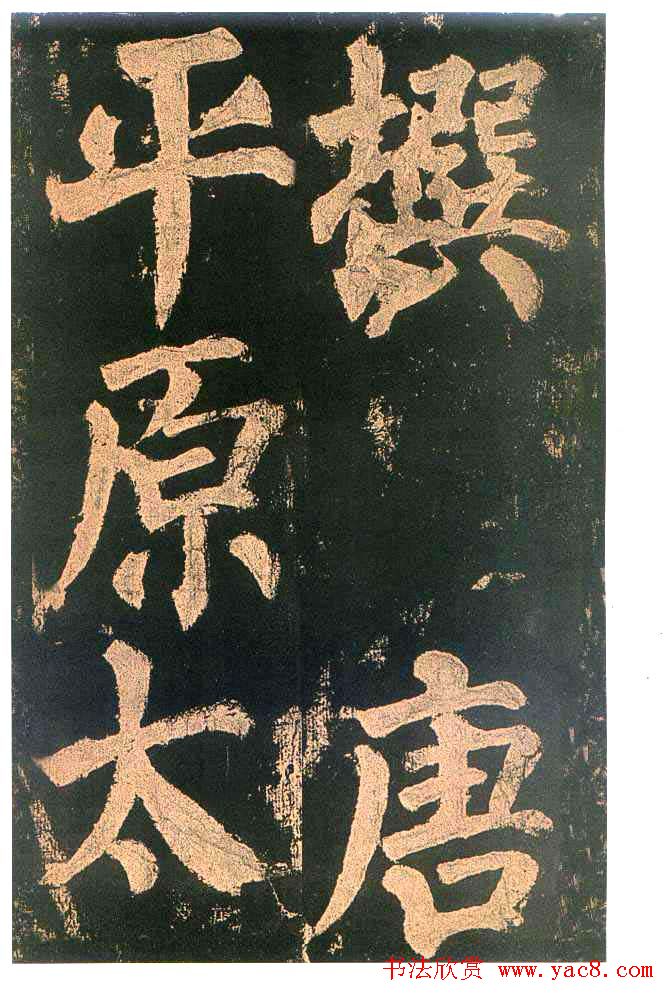 撰 唐
平原太
书法欣赏 www.yac8.com